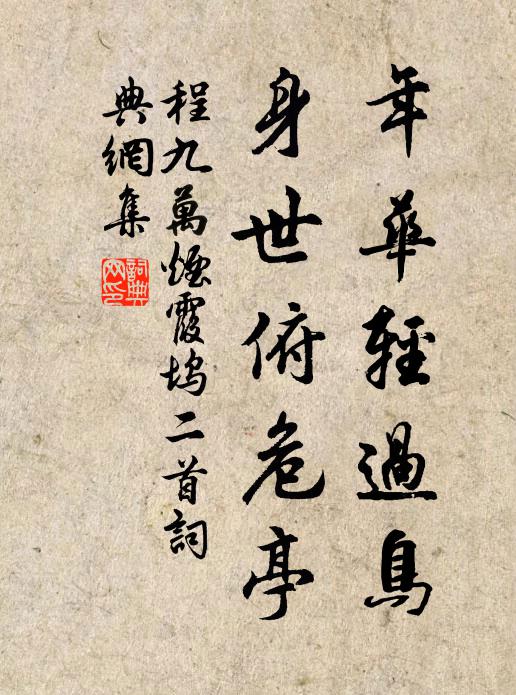 年華輕過鳥
身世俯危亭
程九萬煙霞塢二首詞
典網集
詞典
网印